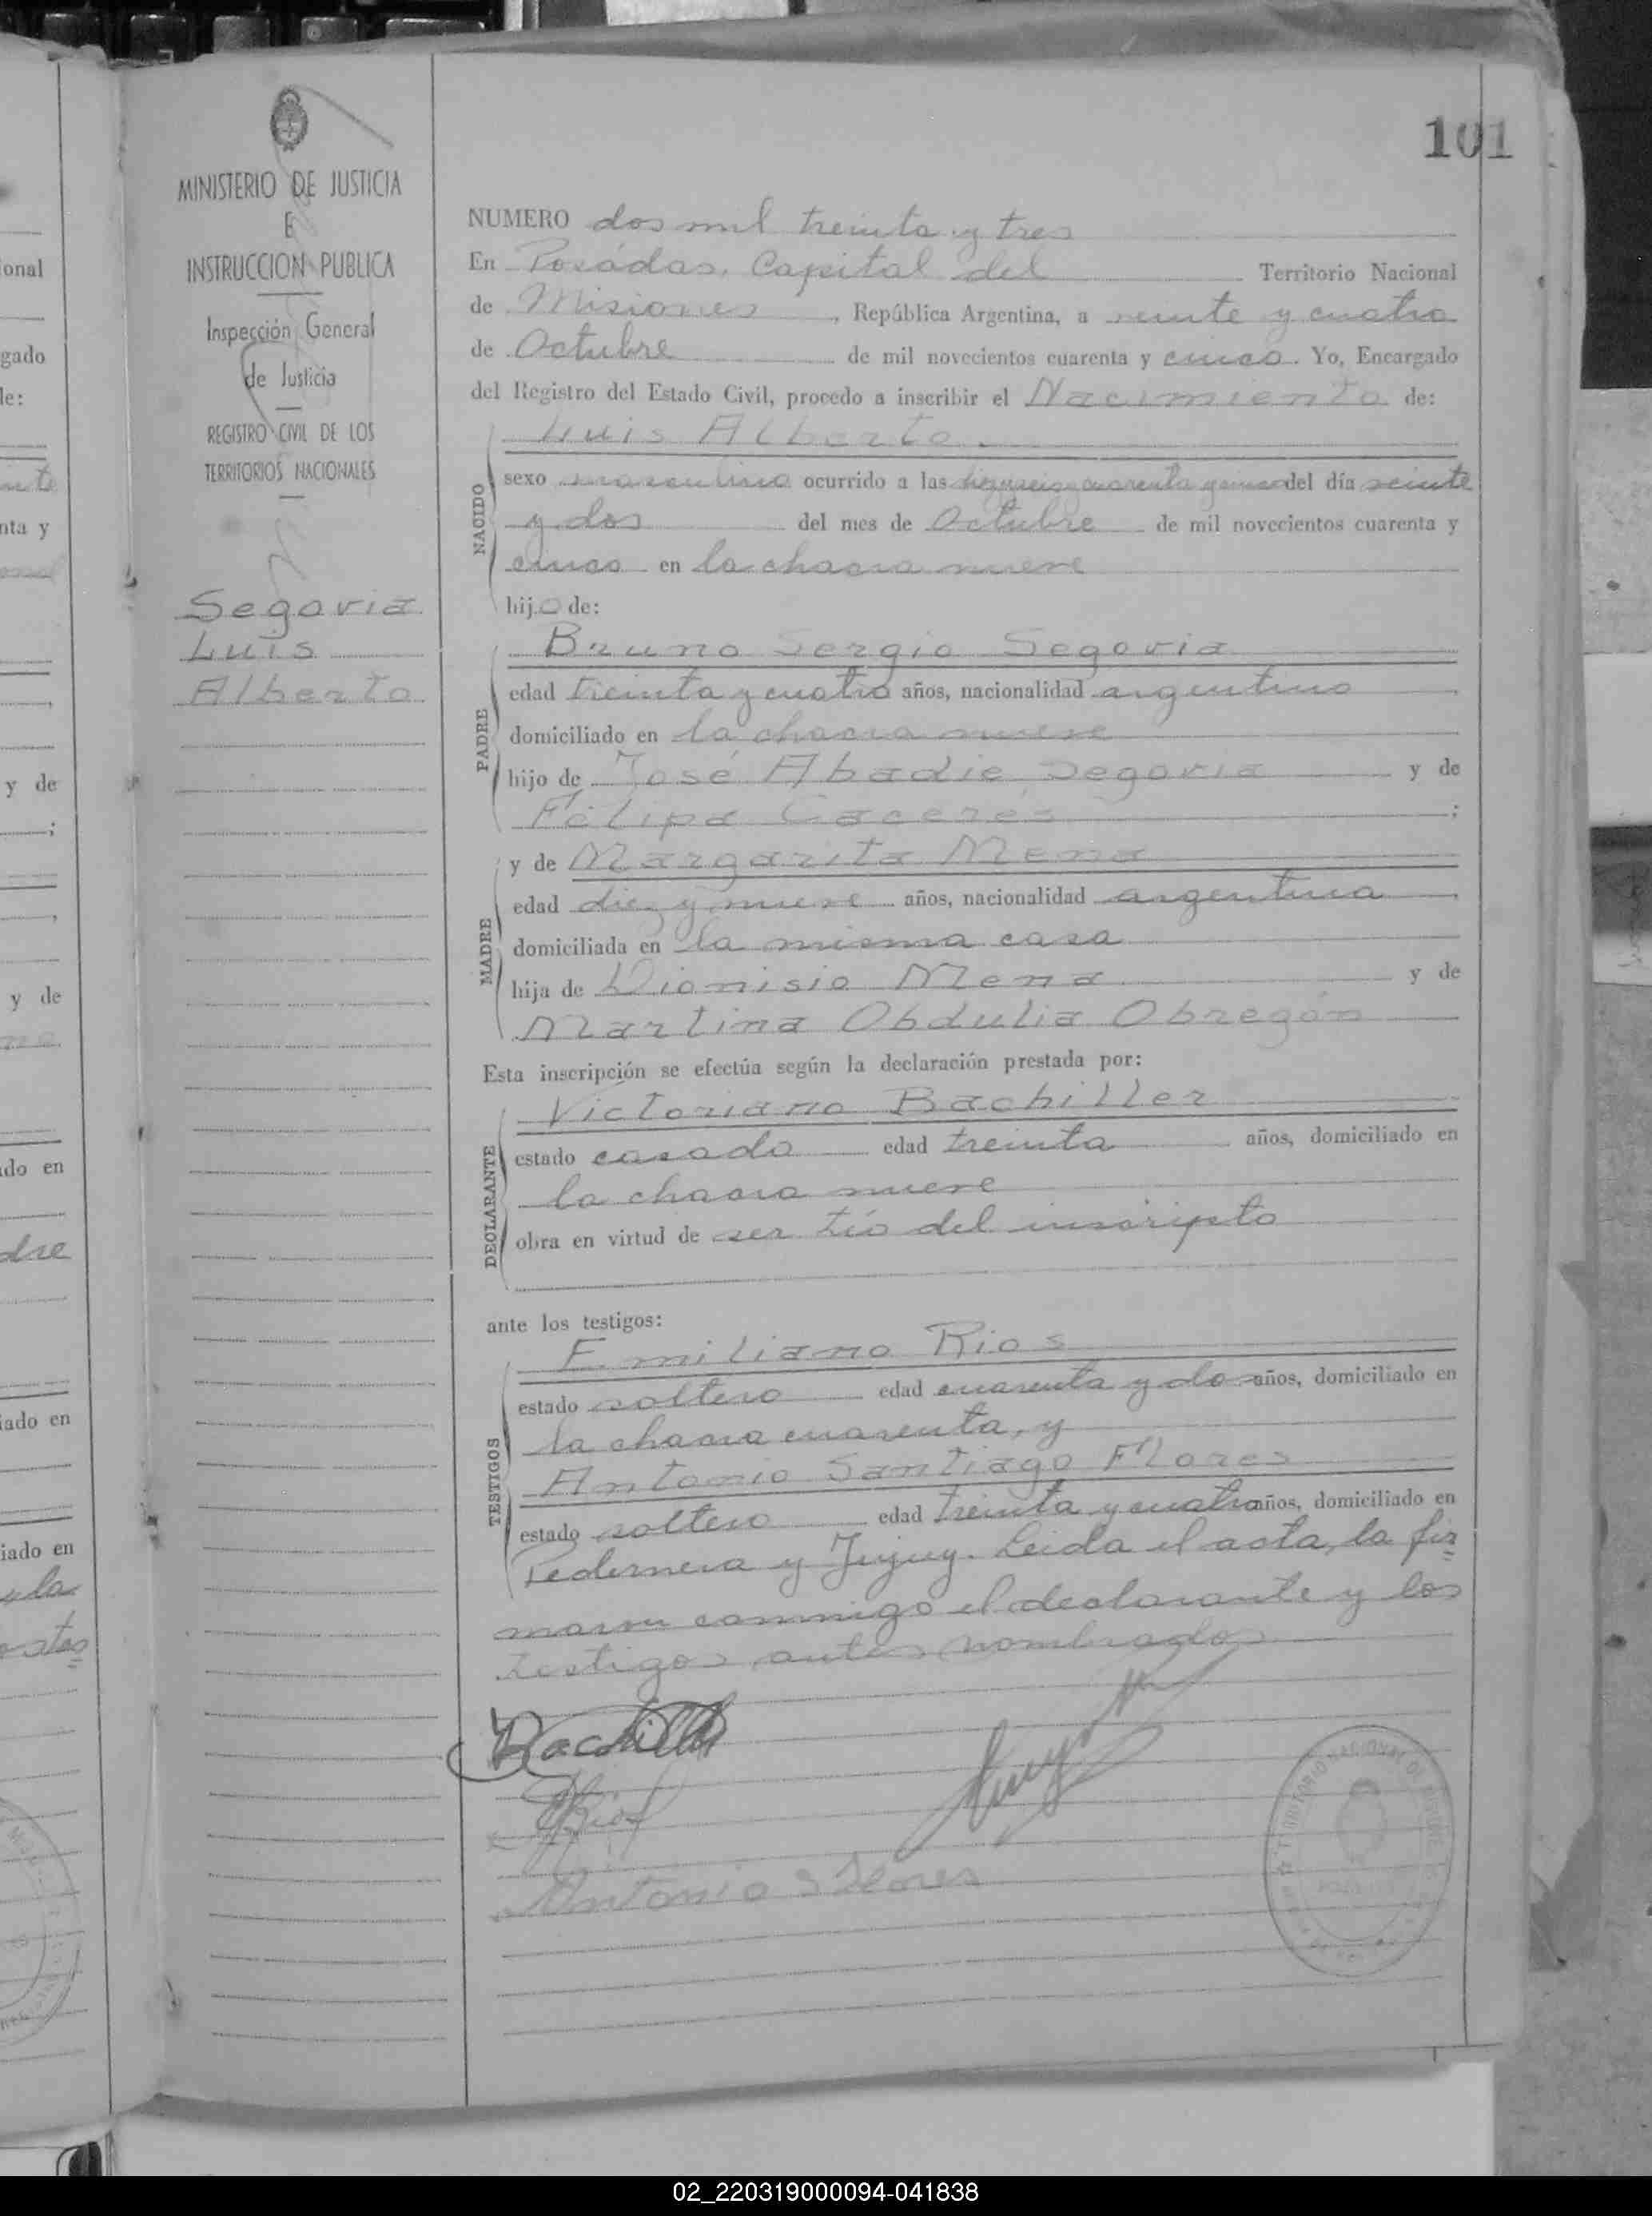 101
MINISTERIO DE JUSTICIA
E
INSTRUCCION PUBLICA
Inspección General
de Justicia
REGISTRO CIVIL DE LOS
TERRITORIOS NACIONALES
Segovia
Luis
Alberto
NUMERO dos mil treinta y tres
En Posadas, Capital del Territorio Nacional
de Misiones, República Argentina, a veinte y cuatro
de Octubre de mil novecientos cuarenta y cinco. Yo, Encargado
del Registro del Estado Civil, procedo a inscribir el Nacimiento de:
Luis Alberto.
NACIDO
sexo masculino ocurrido a las diez y seis y cuarenta y cinco del día veinte
y dos del mes de Octubre de mil novecientos cuarenta y
cinco en la chacra nueve
hijo de:
Bruno Sergio Segovia
PADRE
edad treinta y cuatro años, nacionalidad argentino,
domiciliado en la chacra nueve
hijo de José Abadie Segovia y de
Felipa Caceres;
y de Margarita Mena
MADRE
edad diez y nueve años, nacionalidad argentina,
domiciliada en la misma casa
hija de Dionisio Mena y de
Martina Obdulia Obregón
Esta inscripción se efectúa según la declaración prestada por:
Victoriano Bachiller
DECLARANTE
estado casado edad treinta años, domiciliado en
la chacra nueve
obra en virtud de ser tío del inscripto
ante los testigos:
Emiliano Rios
TESTIGOS
estado soltero edad cuarenta y dos años, domiciliado en
la chacra cuarenta, y
Antonio Santiago Flores
estado soltero edad treinta y cuatro años, domiciliado en
Pedernera y Jujuy. Leida el acta, la fir=
maron conmigo el declarante y los
testigos antes nombrados
Bachiller
Rios
Antonio S Flores
02_220319000094-041838